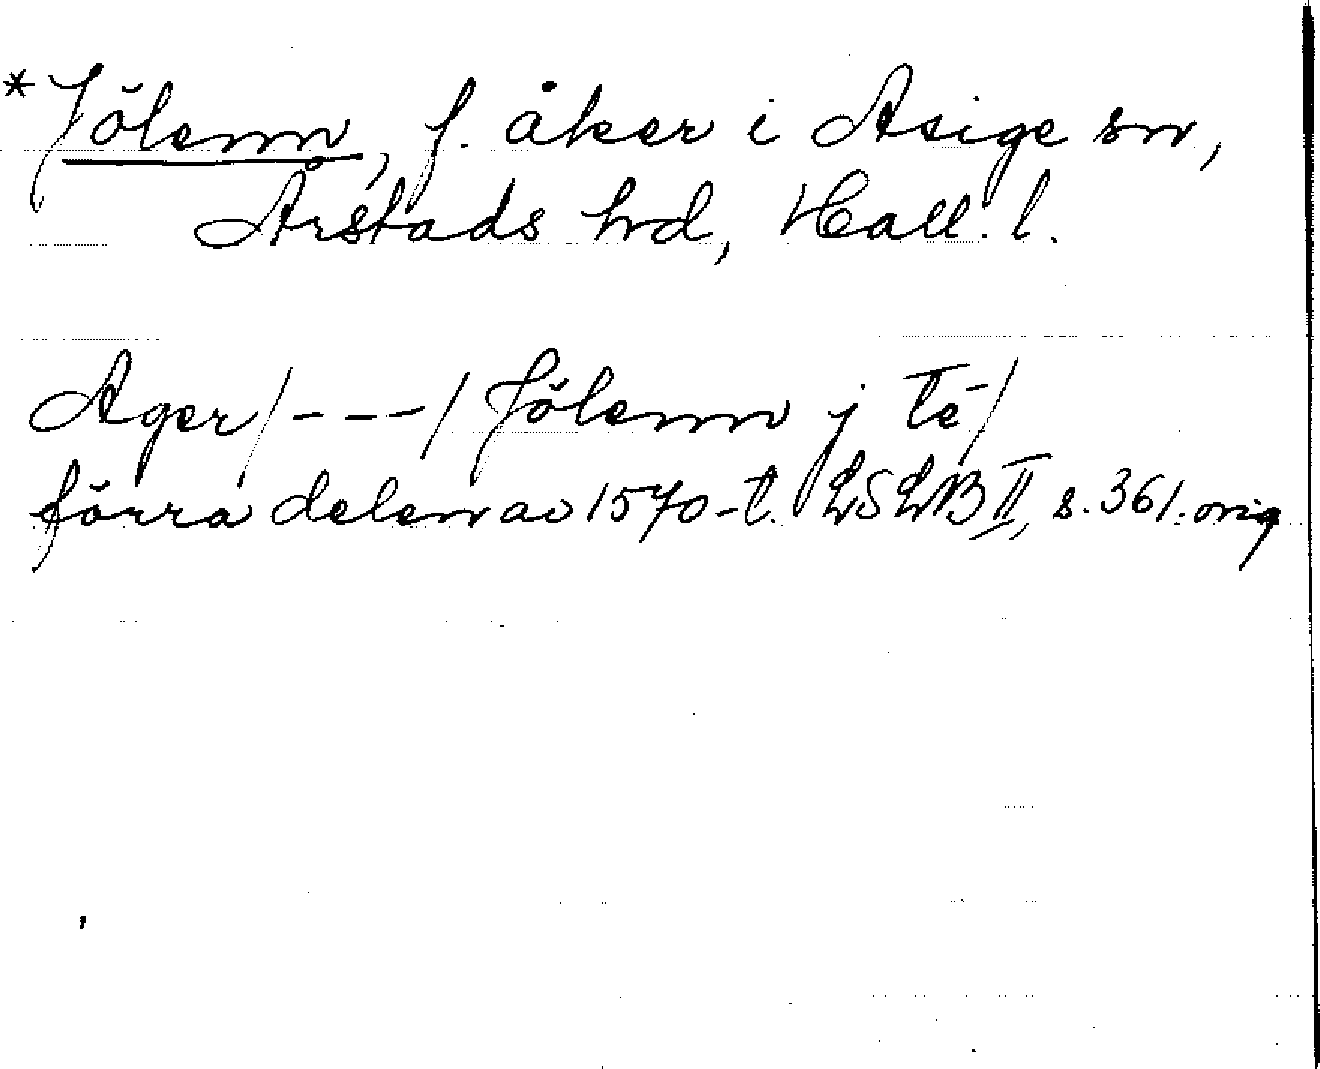 *Jölenn, f. åker i Asige sn,
Årstads hd, Hall. l.
Ager/---/ Jölenn j Te/
förra delen av 1570-t. LSLB II, s. 361. orig